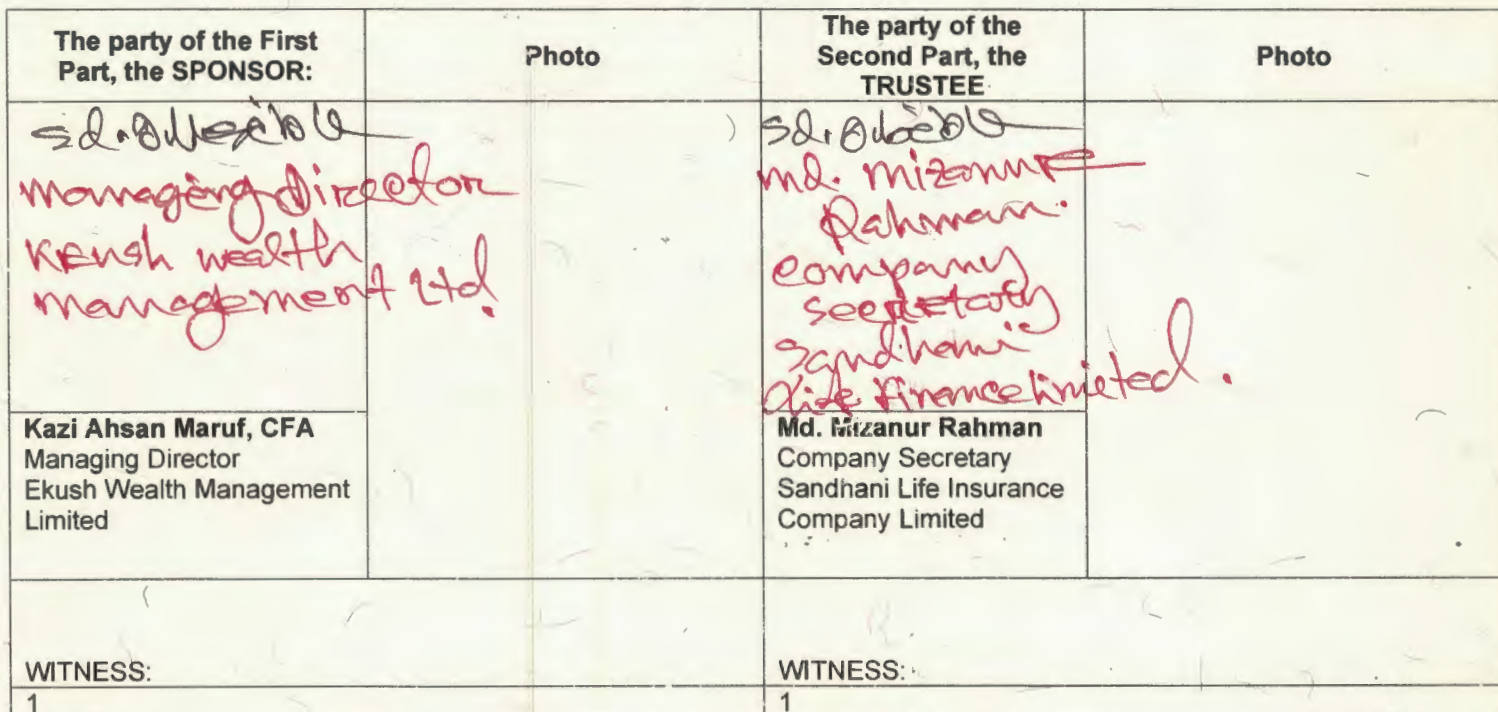 The party of the First
Part, the SPONSOR:
Photo
The party of the
Second Part, the
TRUSTEE
Photo
sd.
Managing Director
wealth
management Ltd.
sd.
md. mizanur
Rahman.
company
secretary
sandhani
life finance limited.
Kazi Ahsan Maruf, CFA
Managing Director
Ekush Wealth Management
Limited
Md. Mizanur Rahman
Company Secretary
Sandhani Life Insurance
Company Limited
WITNESS:
WITNESS:
1
1